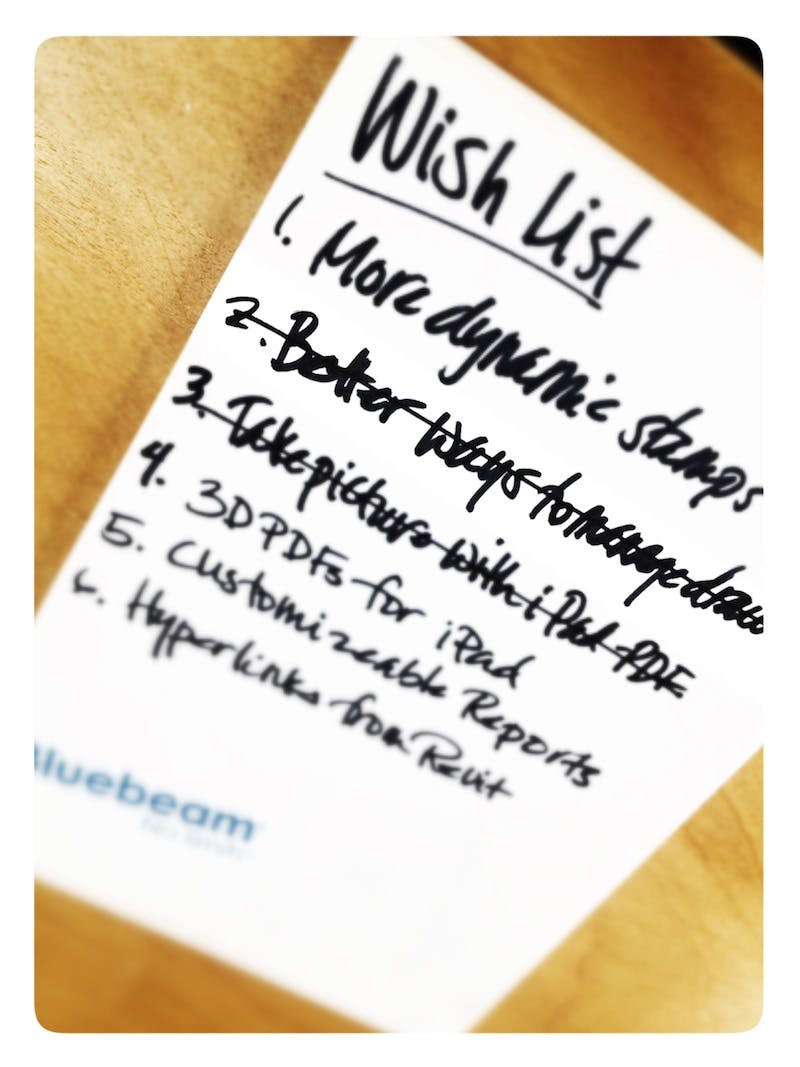 Wish List
1. More dynamic stamps
2. Better ways to manage
3. Take picture with iPad PDF
4. 3D PDFs for iPad
5. Customizeable Reports
6. Hyperlinks from Revit
Bluebeam